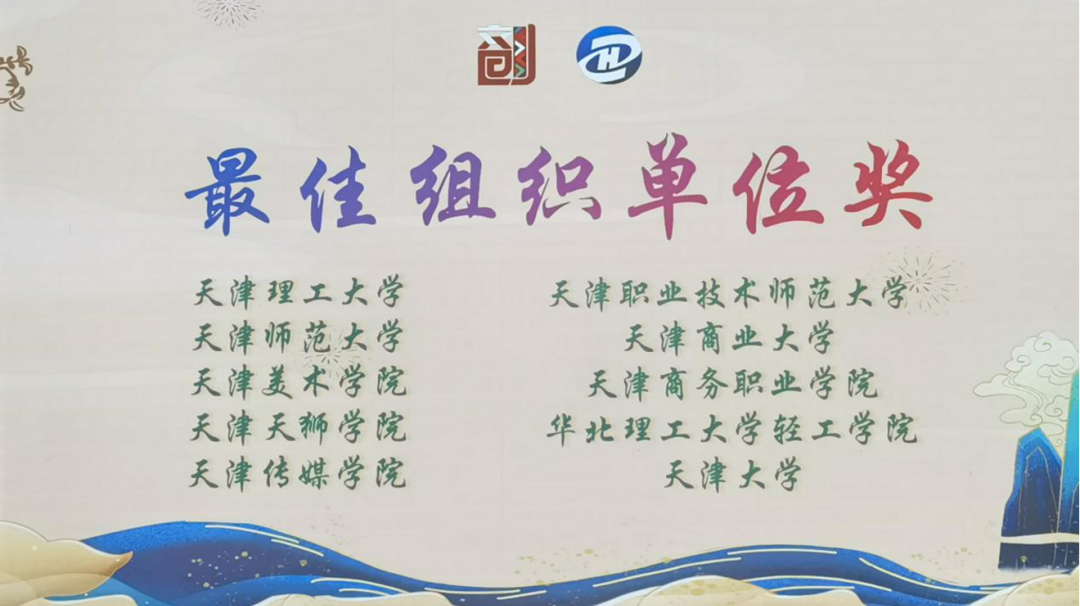 最佳组织单位奖
天津理工大学
天津师范大学
天津美术学院
天津天狮学院
天津传媒学院
天津职业技术师范大学
天津商业大学
天津商务职业学院
华北理工大学轻工学院
天津大学